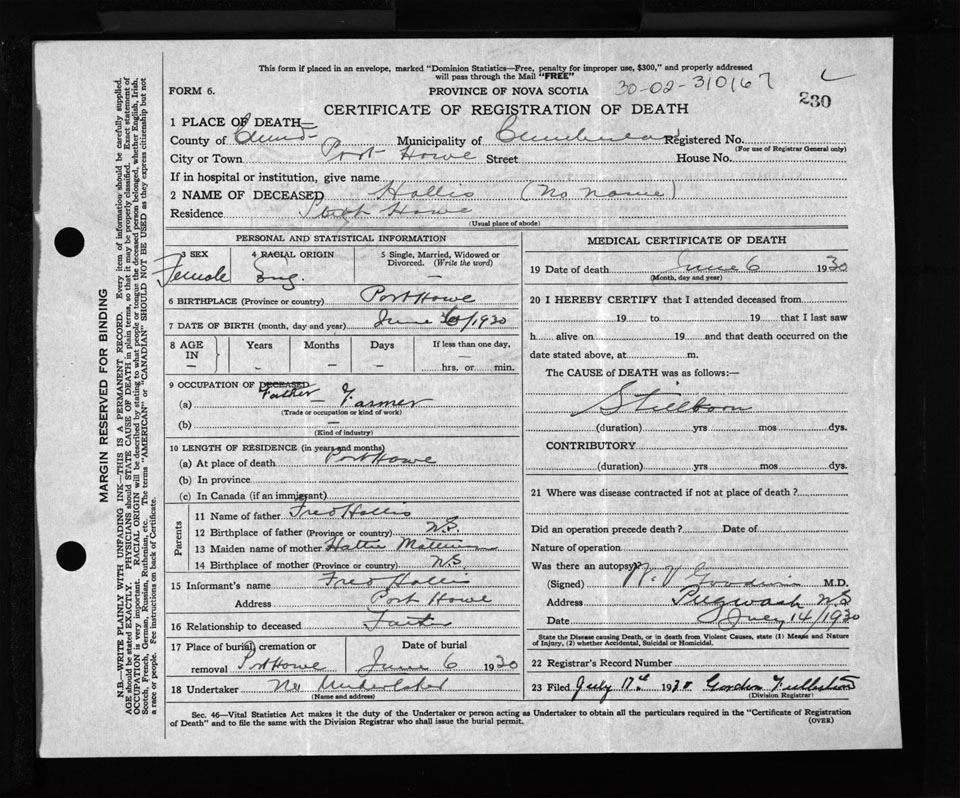 This form if placed in an envelope, marked "Dominion Statistics—Free, penalty for improper use, $300," and properly addressed
will pass through the Mail "FREE"
FORM 6.
PROVINCE OF NOVA SCOTIA
30-02-310167
230
CERTIFICATE OF REGISTRATION OF DEATH
1 PLACE OF DEATH—
County of Cumb- Municipality of Cumberland Registered No.
(For use of Registrar General only)
City or Town Port Howe Street House No.
If in hospital or institution, give name
2 NAME OF DECEASED Hollis (No name)
Residence Port Howe
(Usual place of abode)
PERSONAL AND STATISTICAL INFORMATION
3 SEX Female
4 RACIAL ORIGIN Eng.
5 Single, Married, Widowed or Divorced. (Write the word) —
6 BIRTHPLACE (Province or country) Port Howe
7 DATE OF BIRTH (month, day and year) June 6/1930
8 AGE IN Years Months Days If less than one day,
hrs. or min.
9 OCCUPATION OF DECEASED
Father
(a) — Farmer
(Trade or occupation or kind of work)
(b) —
(Kind of industry)
10 LENGTH OF RESIDENCE (in years and months)
(a) At place of death Port Howe
(b) In province
(c) In Canada (if an immigrant)
Parents
11 Name of father Fred Hollis
12 Birthplace of father (Province or country) N.S.
13 Maiden name of mother Hattie
14 Birthplace of mother (Province or country) N.S.
15 Informant's name Fred Hollis
Address Port Howe
16 Relationship to deceased Father
17 Place of burial, cremation or removal Pt Howe
Date of burial
June 6 1930
18 Undertaker No Undertaker
(Name and address)
MEDICAL CERTIFICATE OF DEATH
19 Date of death June 6 1930
(Month, day and year)
20 I HEREBY CERTIFY that I attended deceased from
19 to 19 that I last saw
h alive on 19 and that death occurred on the
date stated above, at m.
The CAUSE of DEATH was as follows:—
Stillborn
(duration) yrs mos dys.
CONTRIBUTORY
(duration) yrs mos dys.
21 Where was disease contracted if not at place of death?
Did an operation precede death? Date of
Nature of operation
Was there an autopsy
(Signed) Goodwin M.D.
Address Pugwash N.S
Date July 14/1930
State the Disease causing Death, or in death from Violent Causes, state (1) Means and Nature
of Injury, (2) whether Accidental, Suicidal or Homicidal.
22 Registrar's Record Number
23 Filed July 17th 1930 Gordon
(Division Registrar)
Sec. 46—Vital Statistics Act makes it the duty of the Undertaker or person acting as Undertaker to obtain all the particulars required in the "Certificate of Registration
of Death" and to file the same with the Division Registrar who shall issue the burial permit.
(OVER)
MARGIN RESERVED FOR BINDING
N.B.—WRITE PLAINLY WITH UNFADING INK—THIS IS A PERMANENT RECORD. Every item of information should be carefully supplied.
AGE should be stated EXACTLY. PHYSICIANS should STATE CAUSE OF DEATH in plain terms, so that it may be properly classified. Exact statement of
OCCUPATION is very important. RACIAL ORIGIN will be described by stating to what people or tongue the deceased person belonged, whether English, Irish,
Scotch, French, German, Russian, Ruthenian, etc. The terms "AMERICAN" or "CANADIAN" SHOULD NOT BE USED as they express citizenship but not
a race or people. See instructions on back of Certificate.